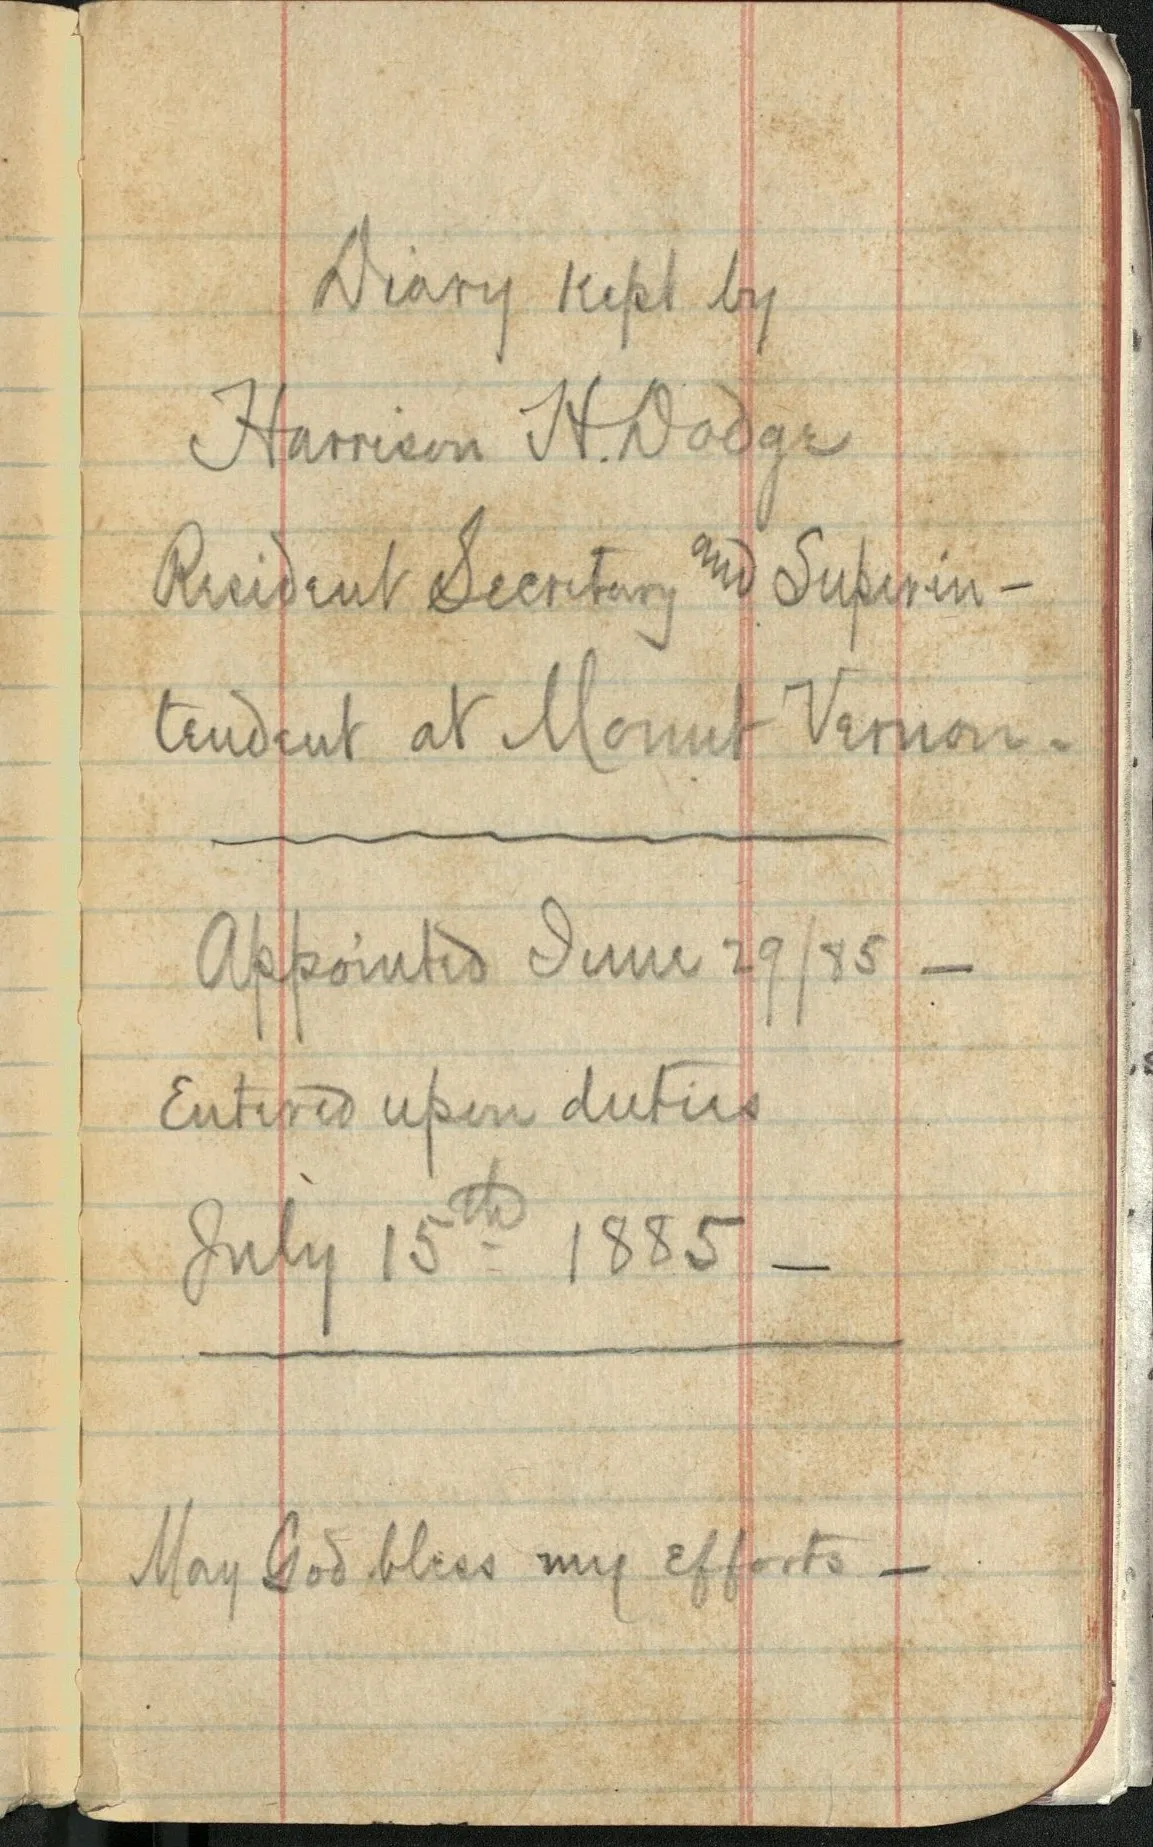 Diary kept by
Harrison H. Dodge
Resident Secretary and Superin-
tendent at Mount Vernon.
Appointed June 29/85 —
Entered upon duties
July 15th 1885 —
May God bless my efforts —